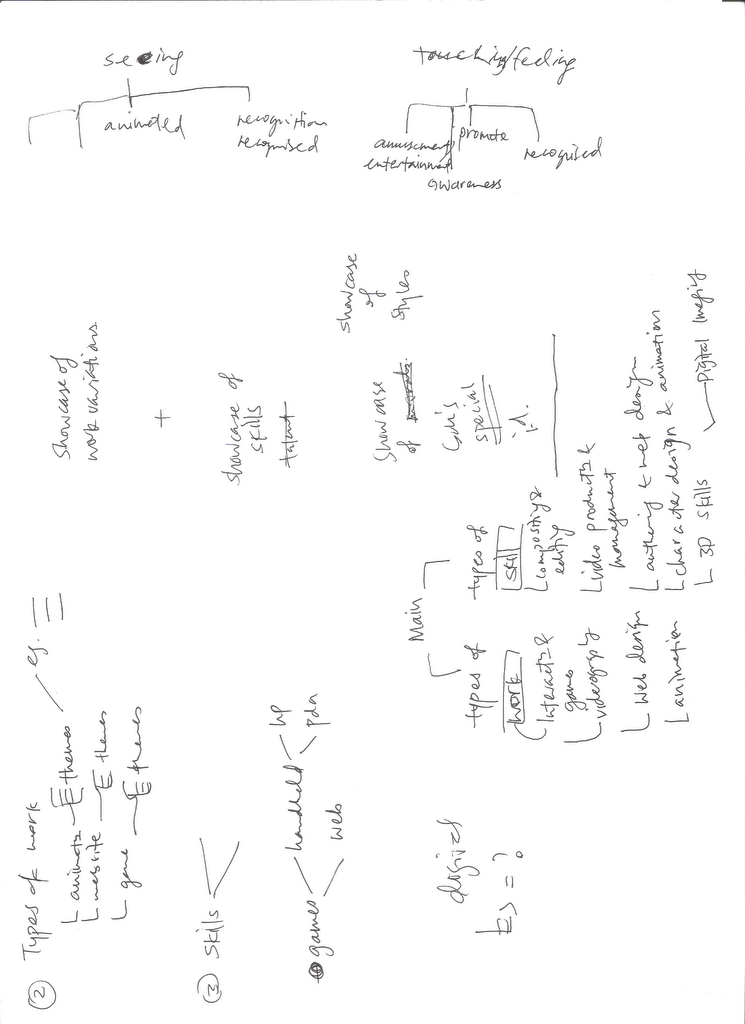 seeing
animated
recognition
recognised
touching/feeling
amusement
entertainment
awareness
promote
recognised
② Types of work
animatn
themes
eg.
website
themes
game
themes
Showcase of
work variations
+
showcase of
skills
talent
Showcase
of
styles
Showcase
of
special
i.d.
③ Skills
games
handheld
hp
pda
web
Main
types of
work
Interactive &
games
videography
web design
animation
types of
skill
compositing &
editing
video productn &
management
authoring & web design
character design & animation
3D skills
Digital Imaging
= ?